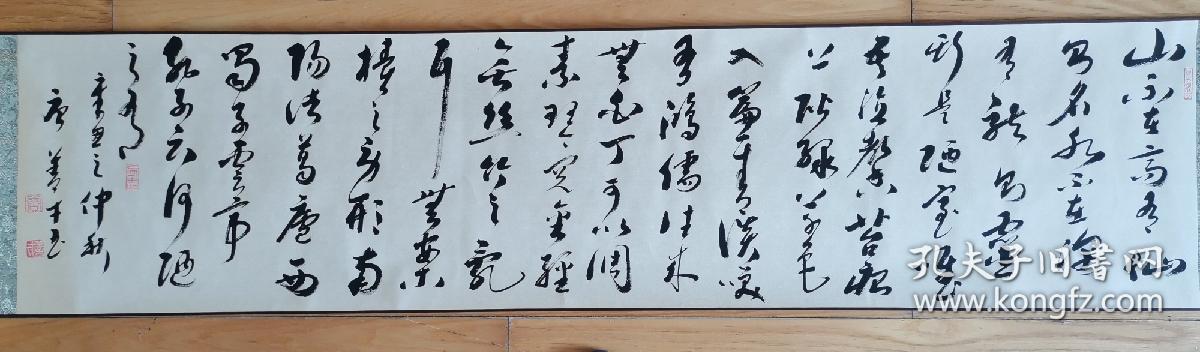 山不在高有仙
則名水不在深
有龍則靈
斯是陋室惟
吾德馨苔痕
上階綠草色
入簾青談笑
有鴻儒往來
無白丁可以調
素琴閱金經
無絲竹之亂
耳無案
牘之勞形南
陽諸葛廬西
蜀子雲亭
孔子云何陋
之有
辛丑之仲秋
唐善才書
孔夫子旧书网
www.kongfz.com